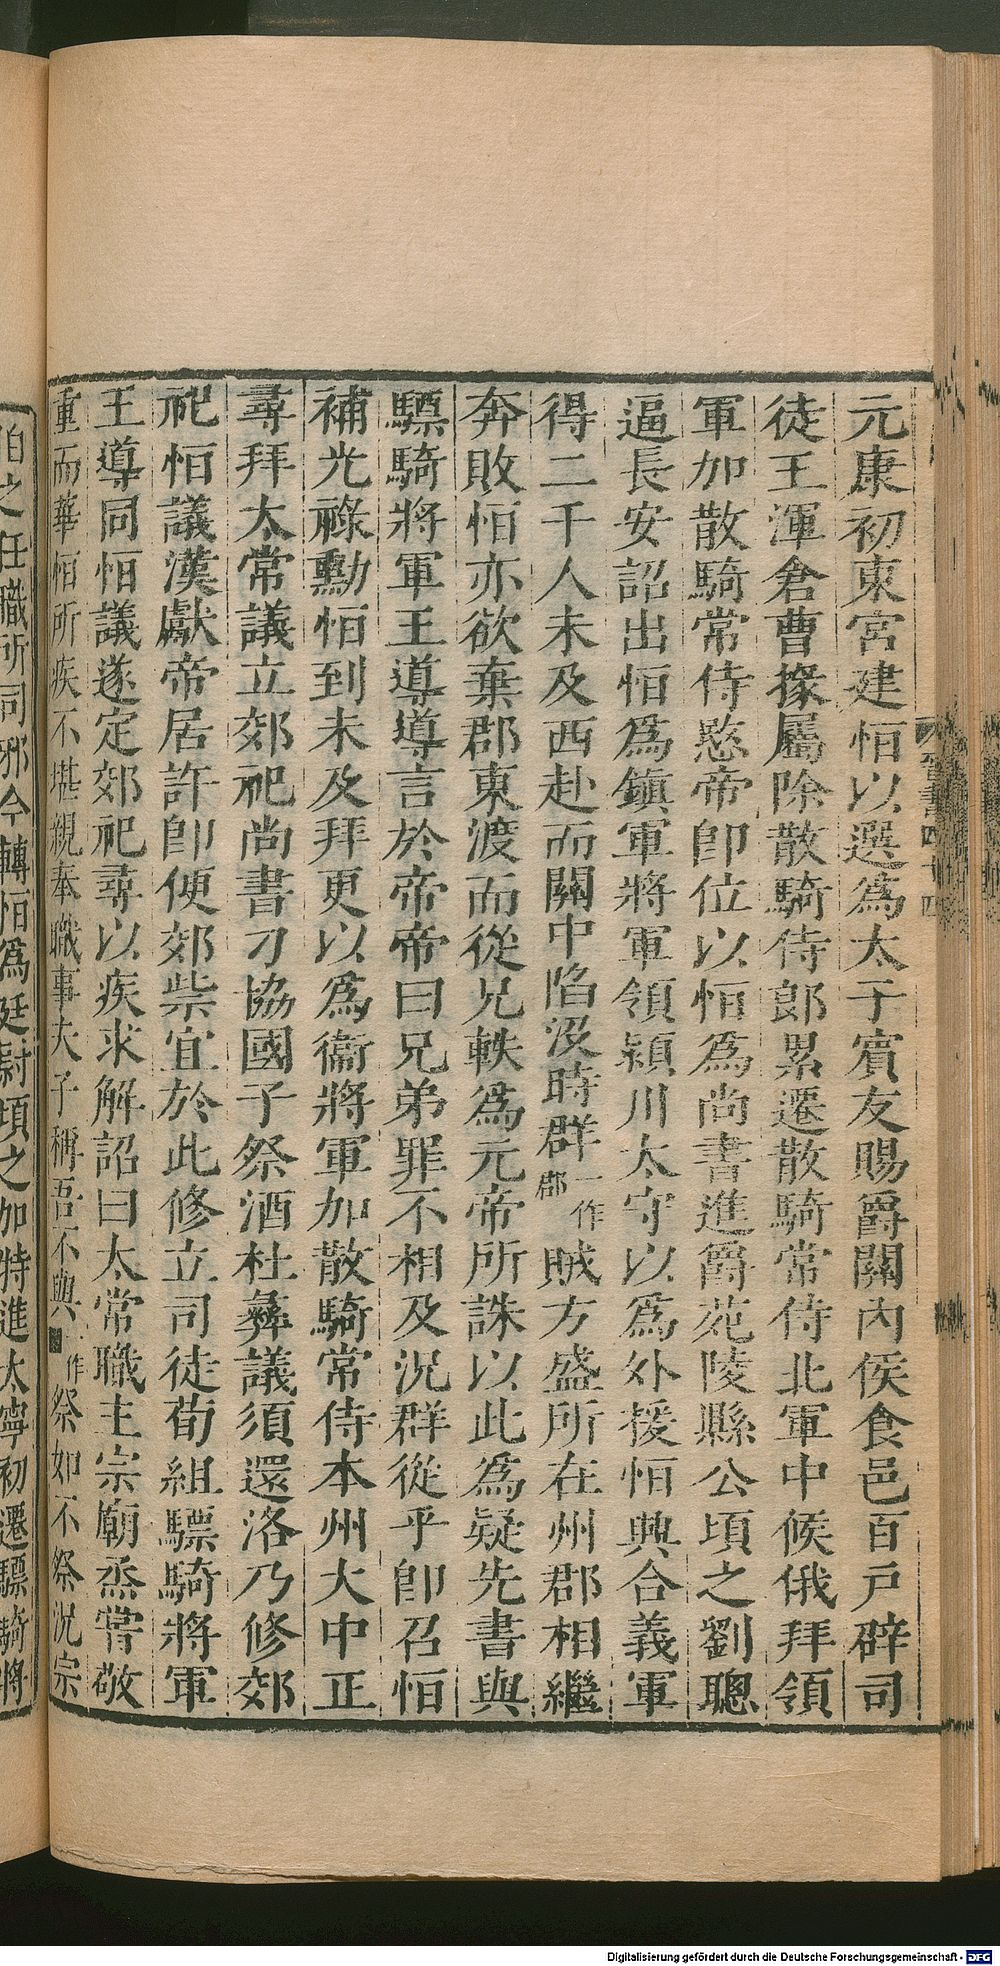 元康初東宮建恒以選為太子賓友賜爵關內侯食邑百戶辟司
徒王渾倉曹掾屬除散騎侍郎累遷散騎常侍北軍中候俄拜領
軍加散騎常侍愍帝即位以恒為尚書進爵苑陵縣公頃之劉聰
逼長安詔出恒為鎮軍將軍領潁川太守以為外援恒興合義軍
得二千人未及西赴而關中陷沒時群一作郡賊方盛所在州郡相繼
奔敗恒亦欲棄郡東渡而從兄軼為元帝所誅以此為疑先書與
驃騎將軍王導導言於帝帝曰兄弟罪不相及況群從乎即召恒
補光祿勳恒到未及拜更以為衞將軍加散騎常侍本州大中正
尋拜太常議立郊祀尚書刁協國子祭酒杜彝議須還洛乃修郊
祀恒議漢獻帝居許即便郊柴宜於此修立司徒荀組驃騎將軍
王導同恒議遂定郊祀尋以疾求解詔曰太常職主宗廟烝嘗敬
重而華恒所疾不堪親奉職事夫子稱吾不與一作祭如不祭況宗
伯之任職所司邪今轉恒為廷尉頃之加特進太寧初遷驃騎將
晉書四十四
Digitalisierung gefördert durch die Deutsche Forschungsgemeinschaft - DFG